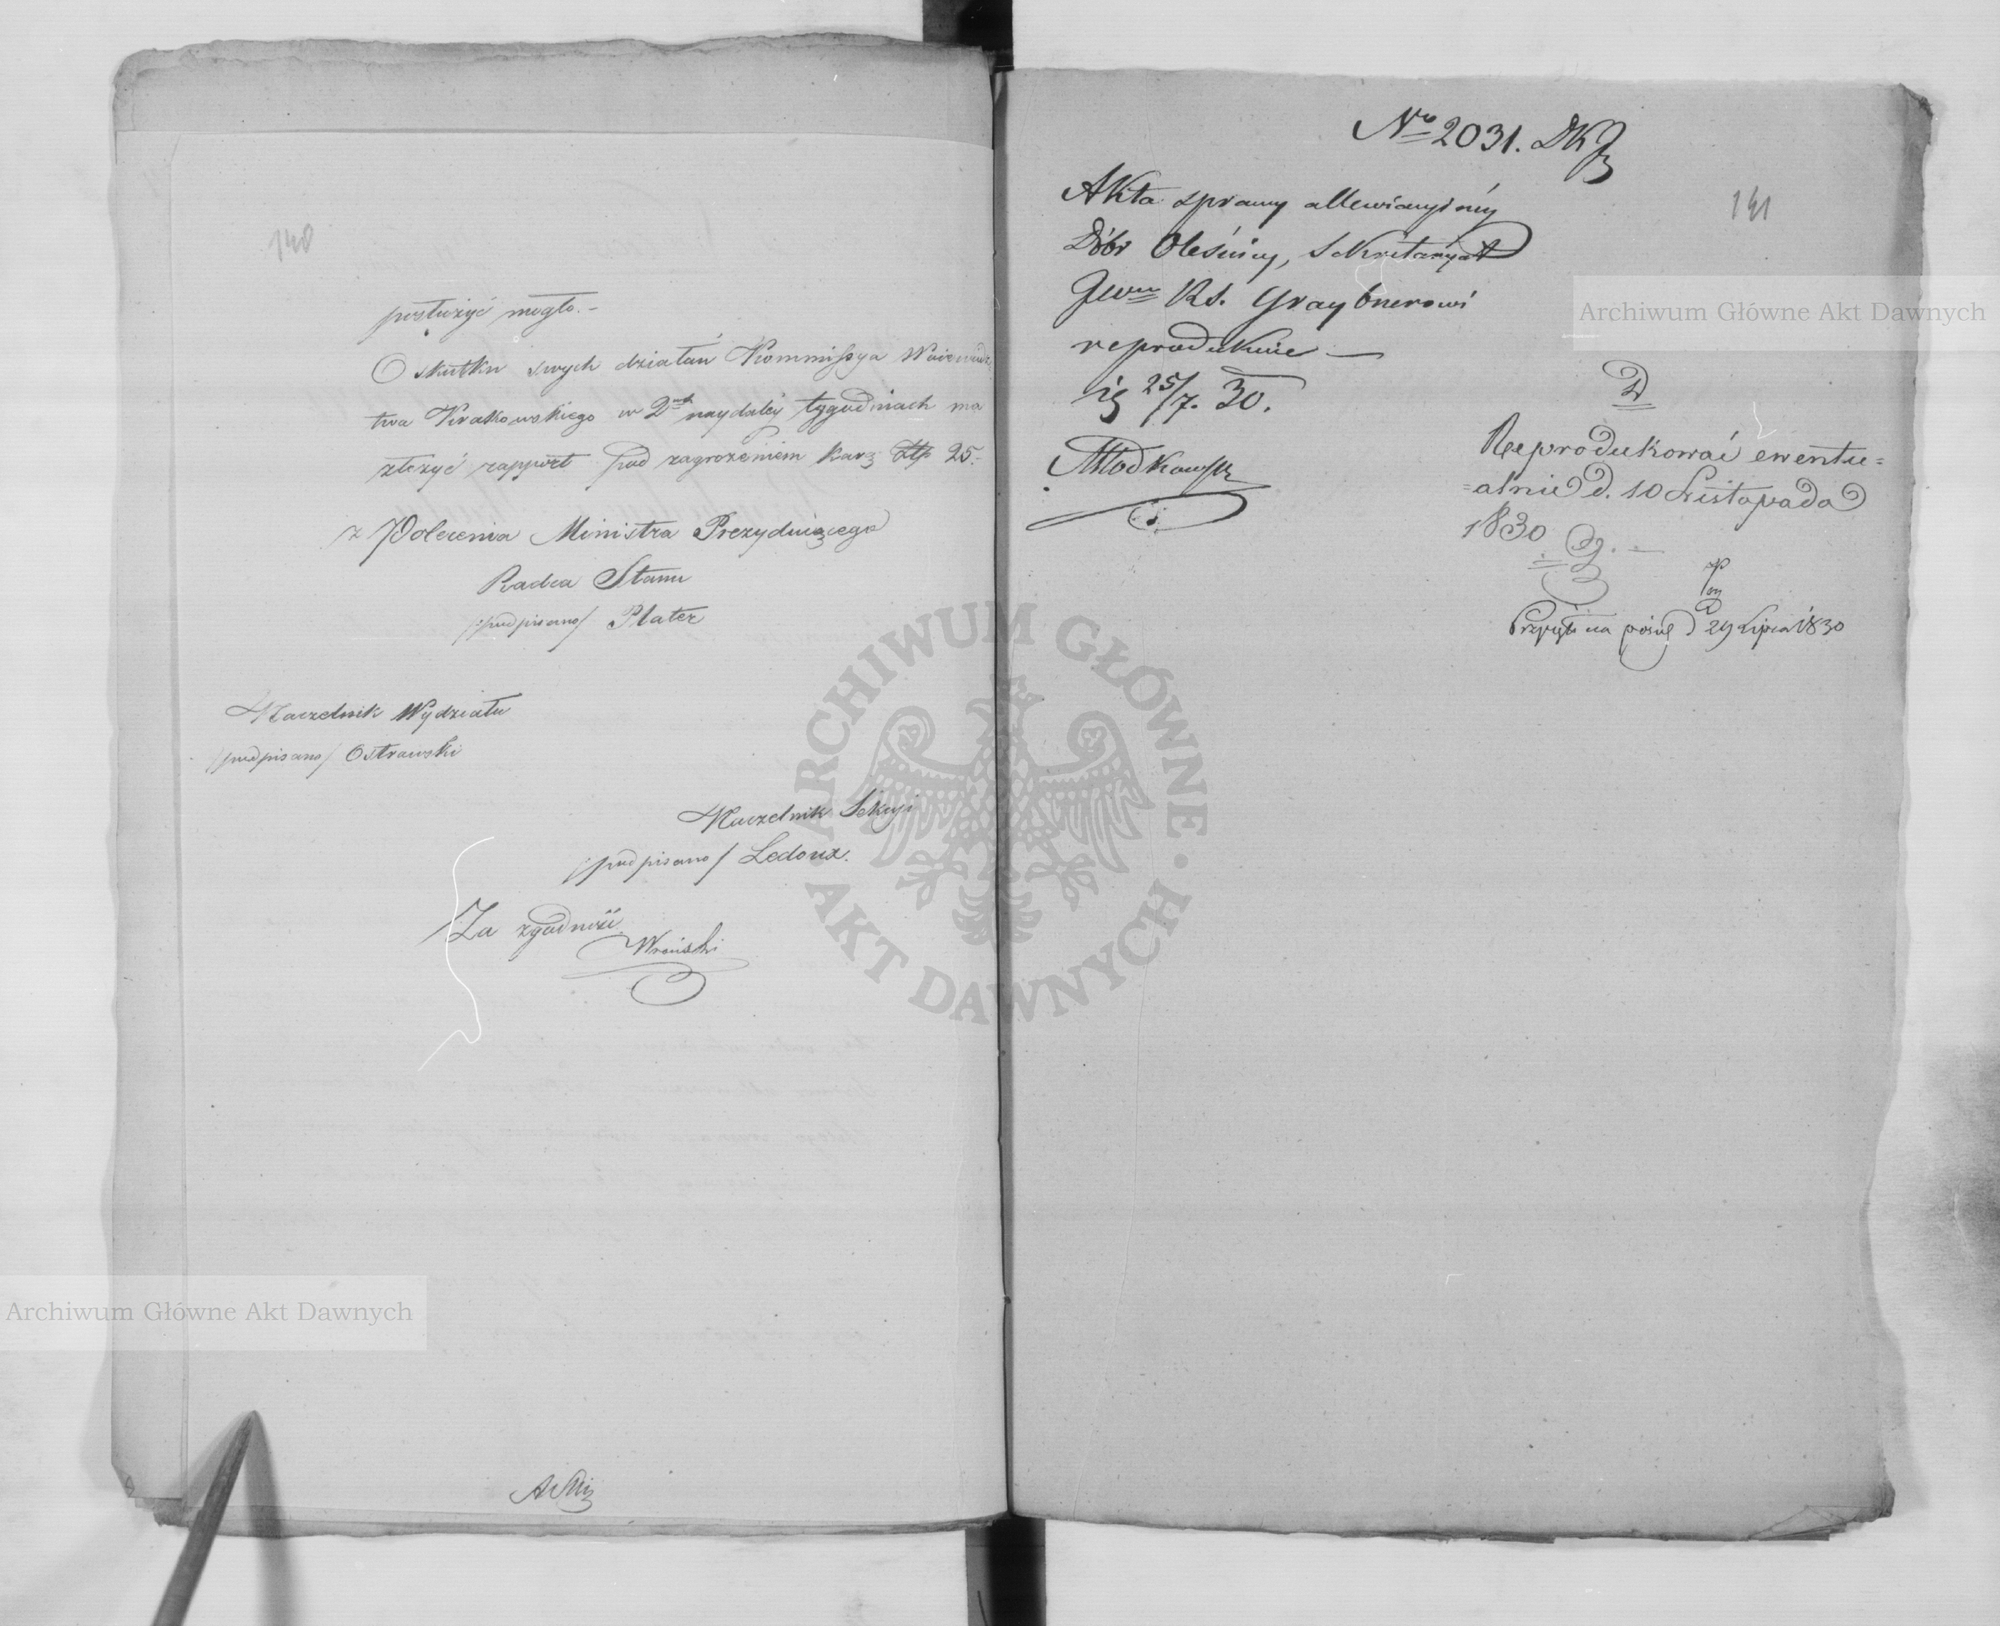 140
posłużyć mogło.-
O skutku swych działań Kommissya Wojewódz
twa Krakowskiego w 2ch naydaley tygodniach ma
złożyć rapport pod zagrożeniem kary Złp 25.-
z Polecenia Ministra Prezyduiącego
Radca Stanu
/podpisano/ Plater
Naczelnik Wydziału
/podpisano/ Ostrowski
Naczelnik Sekcyi
/podpisano/ Ledoux.
Za zgodność
Wroński
No 2031.
141
Akta sprawy allewiacyiney
Dóbr Oleśnicy, Sekretaryat
Ks. Graybnerowi
reprodukuie —
25/7. 30.
Młodkowski
D
Reprodukować ewentu=
=alnie d. 10 Listopada
1830
na d 29 Lipca 1830
Archiwum Główne Akt Dawnych
Archiwum Główne Akt Dawnych
ARCHIWUM GŁÓWNE · AKT DAWNYCH ·